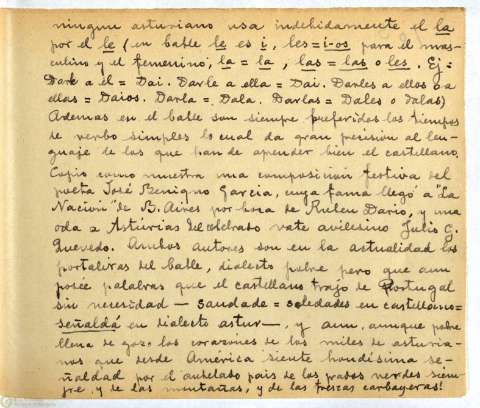 ningun asturiano usa indebidamente el la
por el le (en bable le es i, les=i-os para el mas-
culino y el femenino, la = la, las = las o les. Ej=
Darle a él = Dai. Darle a ella = Dai. Darles a ellos o a
ellas = Daios. Darla = Dala. Darlas = Dales o Dalas)
Ademas en el bable son siempre preferidos los tiempos
de verbo simples lo cual da gran precisión al len-
guaje de los que han de aprender bien el castellano.
Copio como muestra una composición festiva del
poeta José Benigno Garcia, cuya fama llegó a "La
Nación" de B. Aires por boca de Ruben Dario, y una
oda a Asturias del celebrado vate avilesino Julio G.
Quevedo. Ambos autores son en la actualidad los
portaliras del bable, dialecto pobre pero que aun
posee palabras que el castellano trajo de Portugal
sin necesidad — saudade = soledades en castellano =
señaldá en dialecto astur —, y aun, aunque pobre
llena de gozo los corazones de los miles de asturia-
nos que desde América siente hondísima se-
ñaldad por el anhelado pais de los prados verdes siem-
pre, y de las montañas, y de las frescas carbayeras!